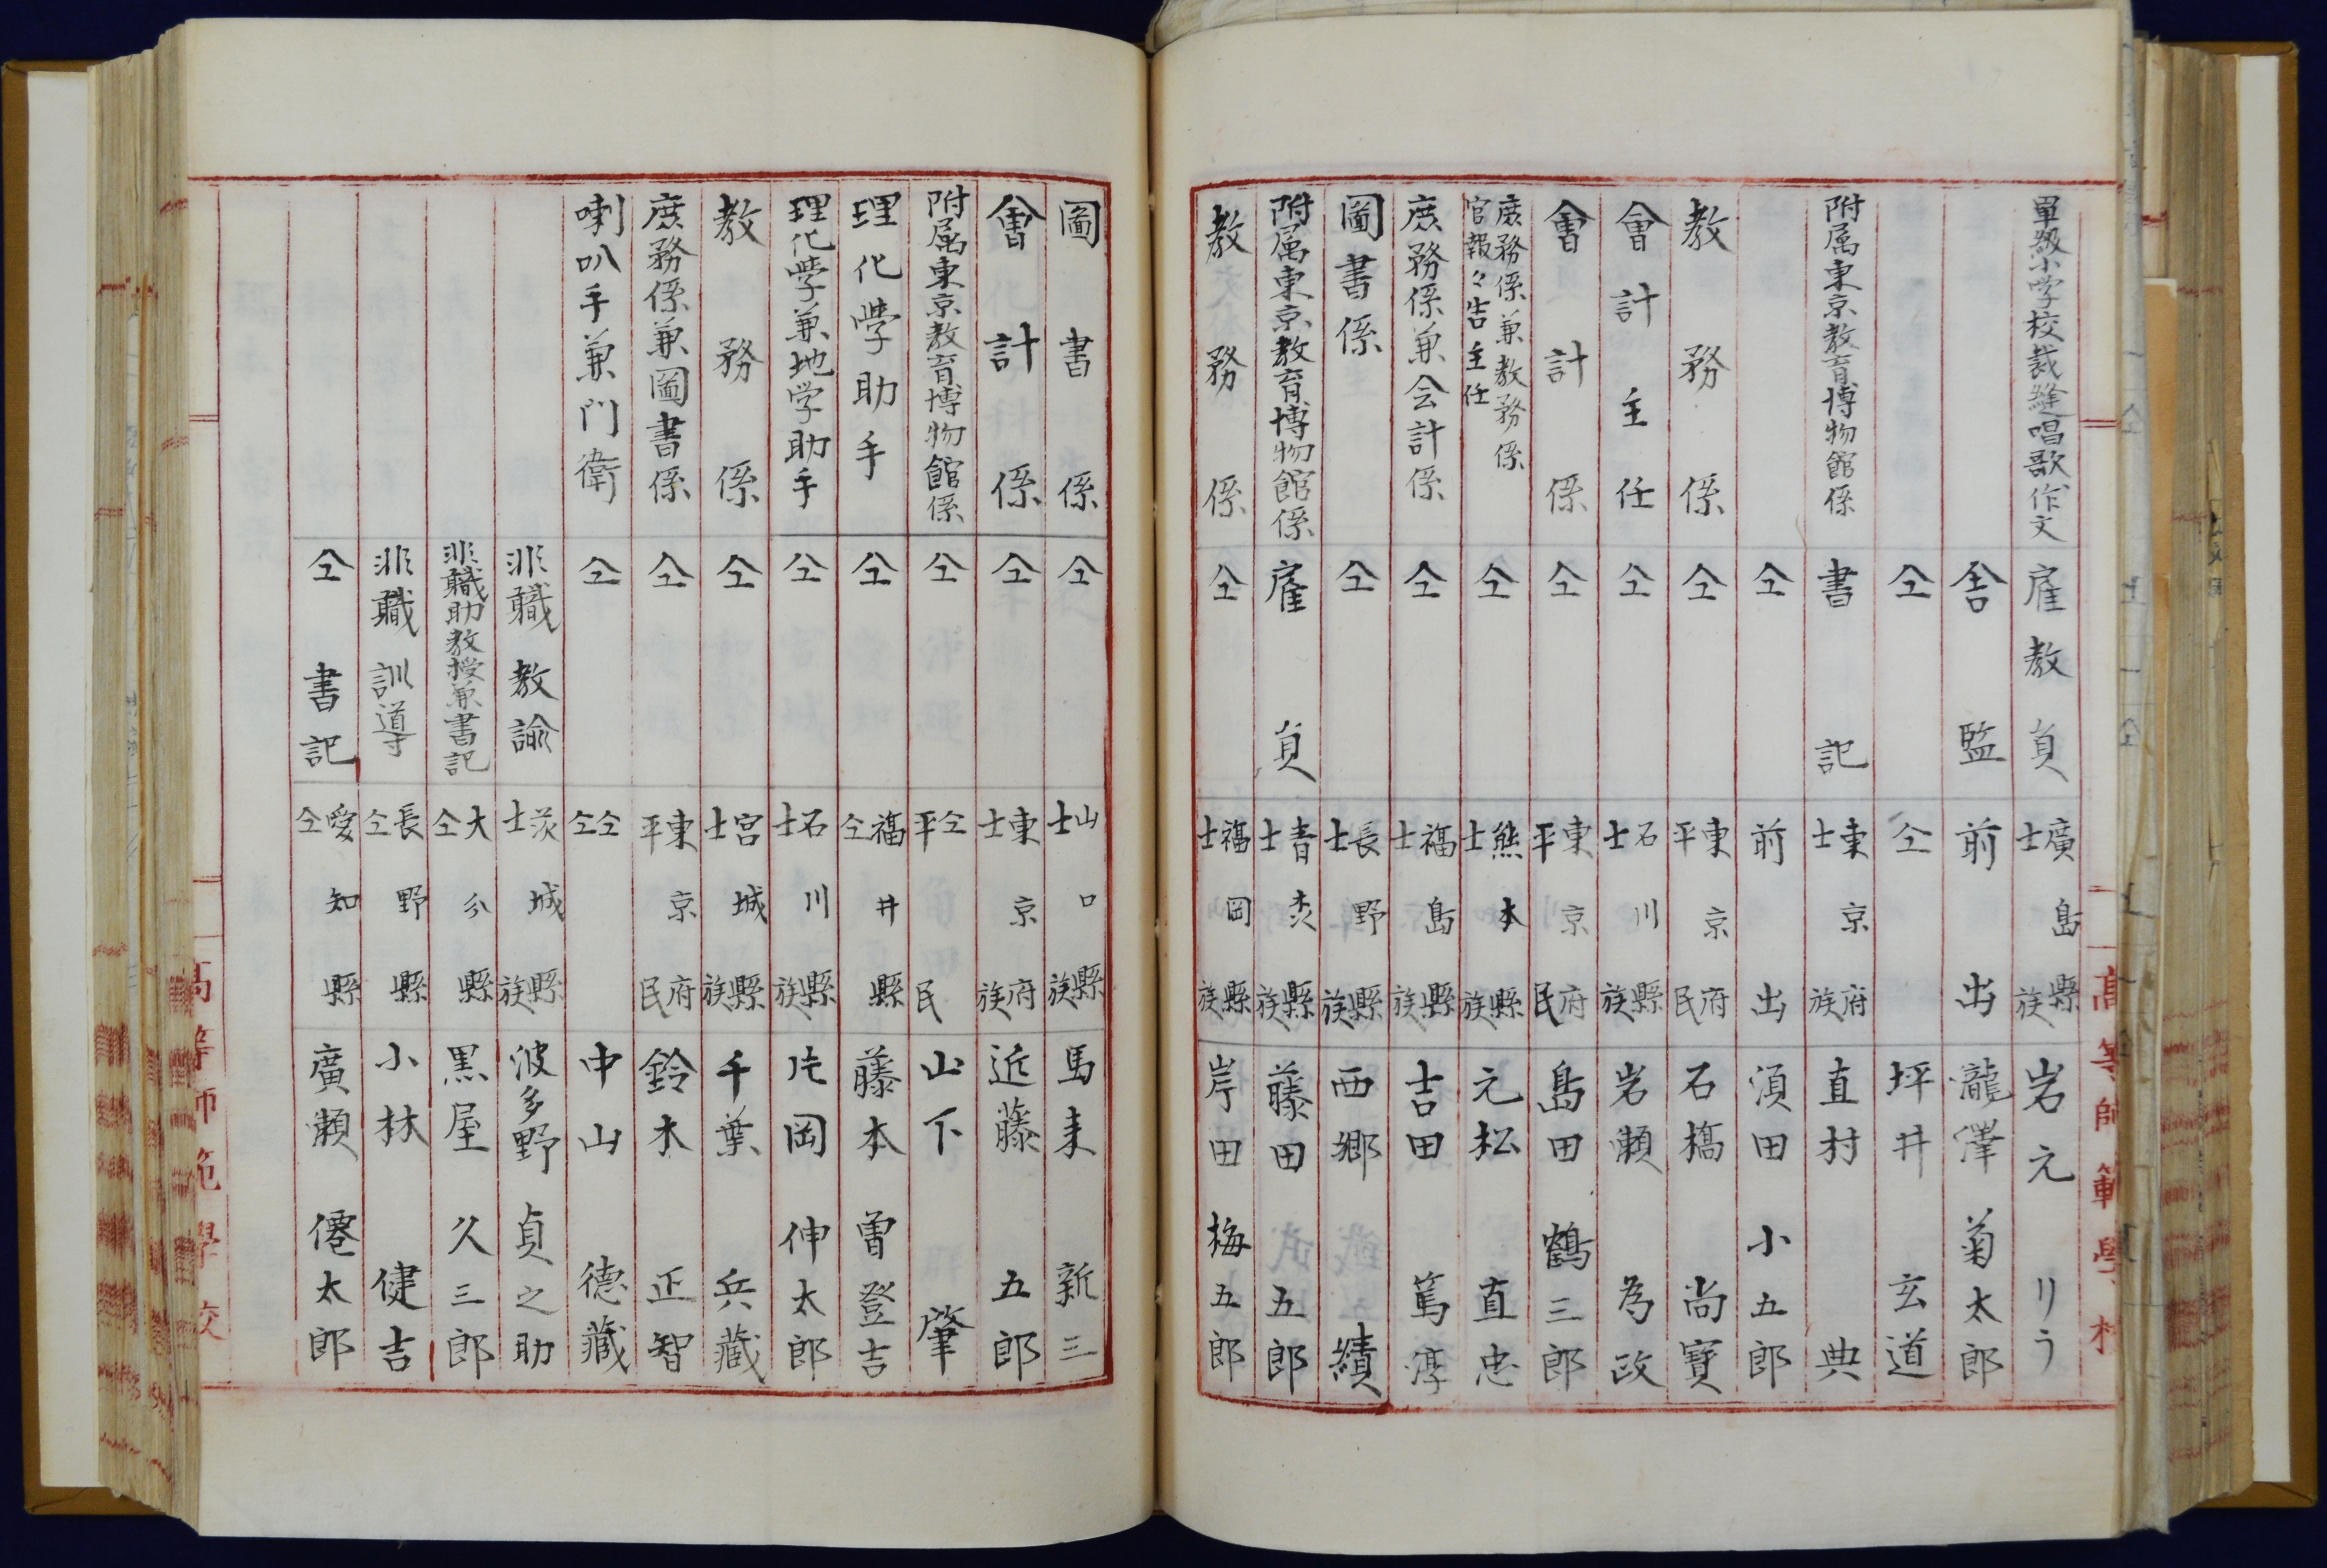 單級小学校裁縫唱歌作文 雇教員 廣島縣士族 岩元リう
舎監 前出 瀧澤菊太郎
仝 仝 坪井玄道
附属東京教育博物館係 書記 東京府士族 直村典
仝 前出 須田小五郎
教務係 仝 東京府平民 石橋尚寳
會計主任 仝 石川縣士族 岩瀬為政
會計係 仝 東京府平民 島田鶴三郎
庶務係兼教務係官報々告主任 仝 熊本縣士族 元松直忠
庶務係兼会計係 仝 福島縣士族 吉田篤淳
圖書係 仝 長野縣士族 西郷績
附属東京教育博物館係 雇員 青森縣士族 藤田五郎
教務係 仝 福岡縣士族 岸田梅五郎
高等師範學校
圖書係 仝 山口縣士族 馬来新三
會計係 仝 東京府士族 近藤五郎
附属東京教育博物館係 仝 仝平民 山下肇
理化學助手 仝 福井縣仝 藤本曽登吉
理化學兼地学助手 仝 石川縣士族 片岡伸太郎
教務係 仝 宮城縣士族 千葉兵藏
庶務係兼圖書係 仝 東京府平民 鈴木正智
喇叭手兼門衛 仝 仝仝 中山德藏
非職教諭 茨城縣士族 波多野貞之助
非職助教授兼書記 大分縣仝 黒屋久三郎
非職訓導 長野縣仝 小林健吉
仝書記 愛知縣仝 廣瀬僊太郎
高等師範學校